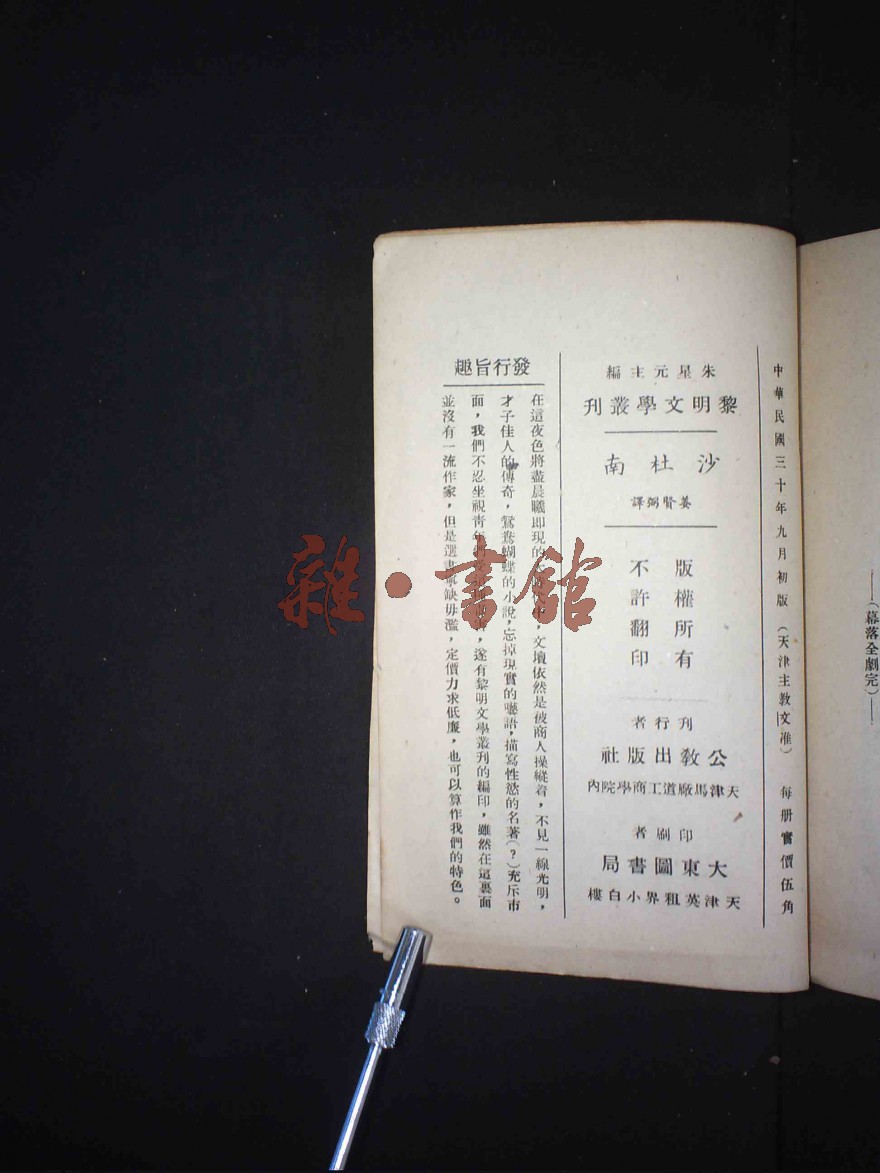 ———(幕落全劇完)———
中華民國三十年九月初版 (天津主教文准) 每册實價伍角
朱星元主編
黎明文學叢刊
沙杜南
姜賢弼譯
版權所有
不許翻印
刊行者
公教出版社
天津馬廠道工商學院內
印刷者
大東圖書局
天津英租界小白樓
發行旨趣
在這夜色將盡晨曦即現的 文壇依然是被商人操縱着,不見一線光明,
才子佳人的傳奇,鴛鴦蝴蝶的小說,忘掉現實的囈語,描寫性慾的名著(?)充斥市
面,我們不忍坐視靑年 遂有黎明文學叢刊的編印,雖然在這裏面
並沒有一流作家,但是選 缺毋濫,定價力求低廉,也可以算作我們的特色。
雜·書館